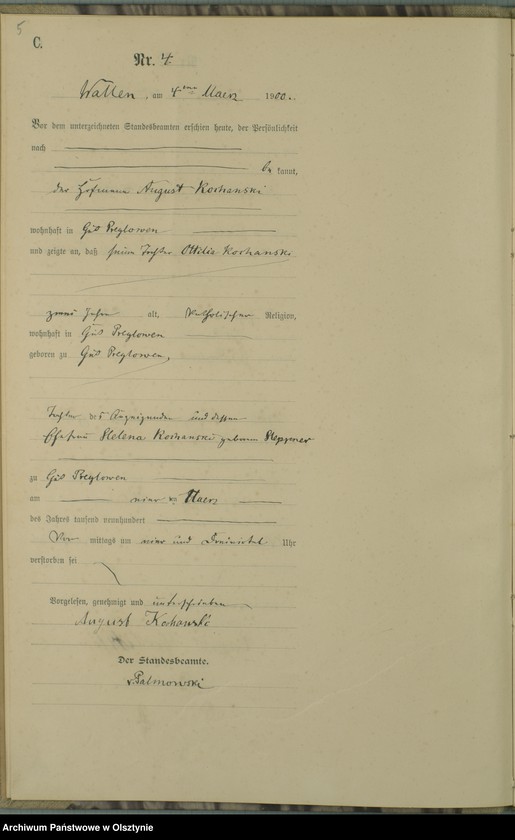 5
C.
Nr. 4
Wallen, am 4ten Maerz 1900.
Vor dem unterzeichneten Standesbeamten erschien heute, der Persönlichkeit
nach
be kannt,
der Hofmann August Kochanski
wohnhaft in Gut Preylowen
und zeigte an, daß seine Tochter Ottilie Kochanski
zwei Jahre alt, katholischer Religion,
wohnhaft in Gut Preylowen
geboren zu Gut Preylowen,
Tochter des Anzeigenden und dessen
Ehefrau Helena Kochanski geborene
zu Gut Preylowen
am Maerz
des Jahres tausend neunhundert
Vor mittags um und Uhr
verstorben sei
Vorgelesen, genehmigt und unterschrieben
August Kochanski
Der Standesbeamte.
v. Palmowski
Archiwum Państwowe w Olsztynie